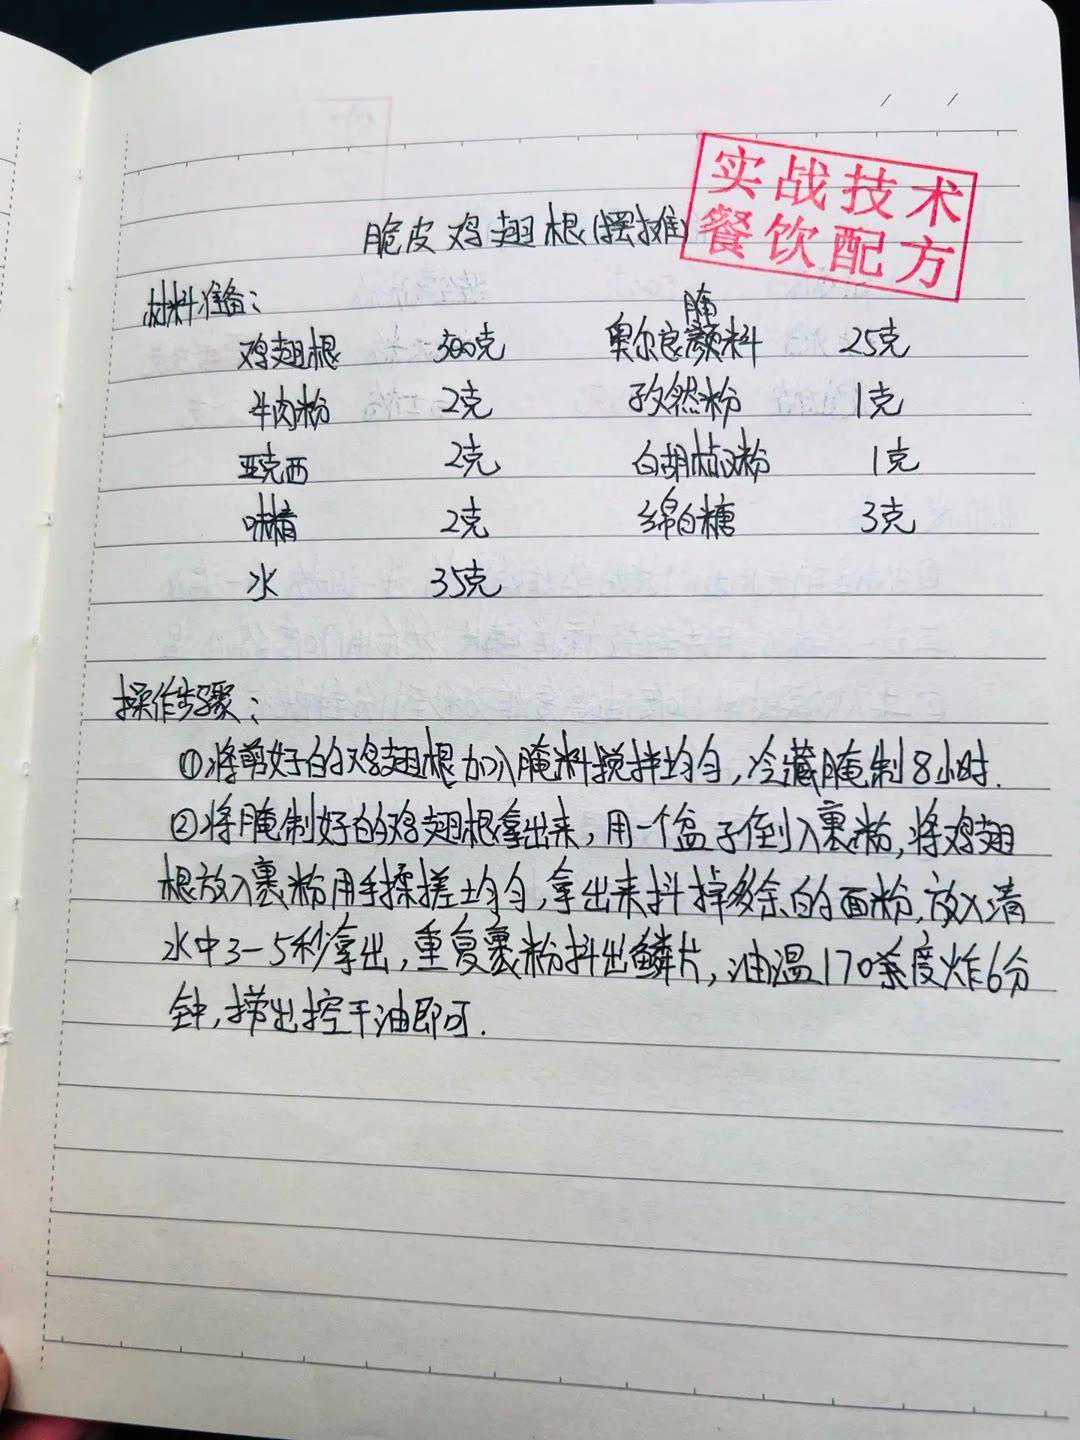 实战技术
餐饮配方
脆皮鸡翅根(摆摊)
材料准备:
鸡翅根 500克 奥尔良腌料 25克
牛肉粉 2克 孜然粉 1克
亚克西 2克 白胡椒粉 1克
味精 2克 绵白糖 3克
水 35克
操作步骤:
①将剪好的鸡翅根加入腌料搅拌均匀,冷藏腌制8小时.
②将腌制好的鸡翅根拿出来,用一个盆子倒入裹粉,将鸡翅
根放入裹粉用手揉搓均匀,拿出来抖掉多余的面粉,放入清
水中3-5秒拿出,重复裹粉抖出鳞片,油温170多度炸6分
钟,捞出控干油即可.